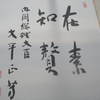 在素
知贅
内閣総理大臣
大平正芳